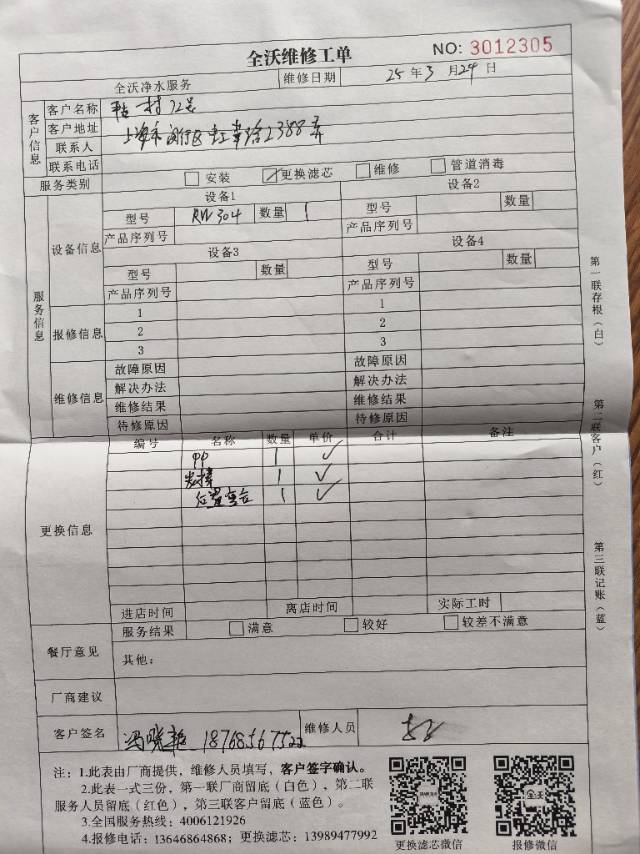 全沃维修工单
NO: 3012305
全沃净水服务 维修日期 25年3月24日
客户信息
客户名称 一村72号
客户地址 上海市闵行区 2388弄
联系人
联系电话
服务类别 安装 更换滤芯 维修 管道消毒
服务信息
设备信息
设备1 设备2
型号 RW304 数量 1 型号 数量
产品序列号 产品序列号
设备3 设备4
型号 数量 型号 数量
产品序列号 产品序列号
报修信息
1 1
2 2
3 3
维修信息
故障原因 故障原因
解决办法 解决办法
维修结果 维修结果
待修原因 待修原因
更换信息
编号 名称 数量 单价 合计 备注
PP 1 ✓
炭棒 1 ✓
1 ✓
进店时间 离店时间 实际工时
餐厅意见
服务结果 满意 较好 较差不满意
其他：
厂商建议
客户签名 冯晓 18768567522 维修人员
注：1.此表由厂商提供，维修人员填写，客户签字确认。
2.此表一式三份，第一联厂商留底（白色），第二联
服务人员留底（红色），第三联客户留底（蓝色）。
3.全国服务热线：4006121926
4.报修电话：13646864868；更换滤芯：13989477992
更换滤芯微信 报修微信
第一联存根（白）
第二联客户（红）
第三联记账（蓝）